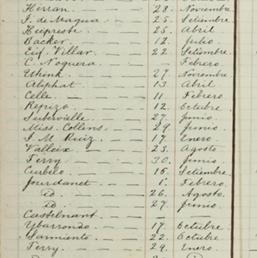 Herran. 28. Noviembre
J. de Magua. 25. Setiembre
Huprote. 25. Abril
Backer. 12. Julio
Eug. Villar. 22. Setiembre
C. Noguera. Febrero
Uhink. 27. Noviembre
Aliphat 13 Abril
Celle 11 Febrero
Repizo 12. Octubre
Suberville 27. Junio
Miss. Collins 29. Junio
J. M. Ruiz 1. Enero
Valleix 23. Agosto
Terry 30. Junio
Cubilo 15. Setiembre
Jourdanet 1. Febrero
id. 26. Agosto
id. 27. Junio
Castelnant
Ybarrondo 17. Octubre
Sarmiento 22. Octubre
Terry 24. Enero